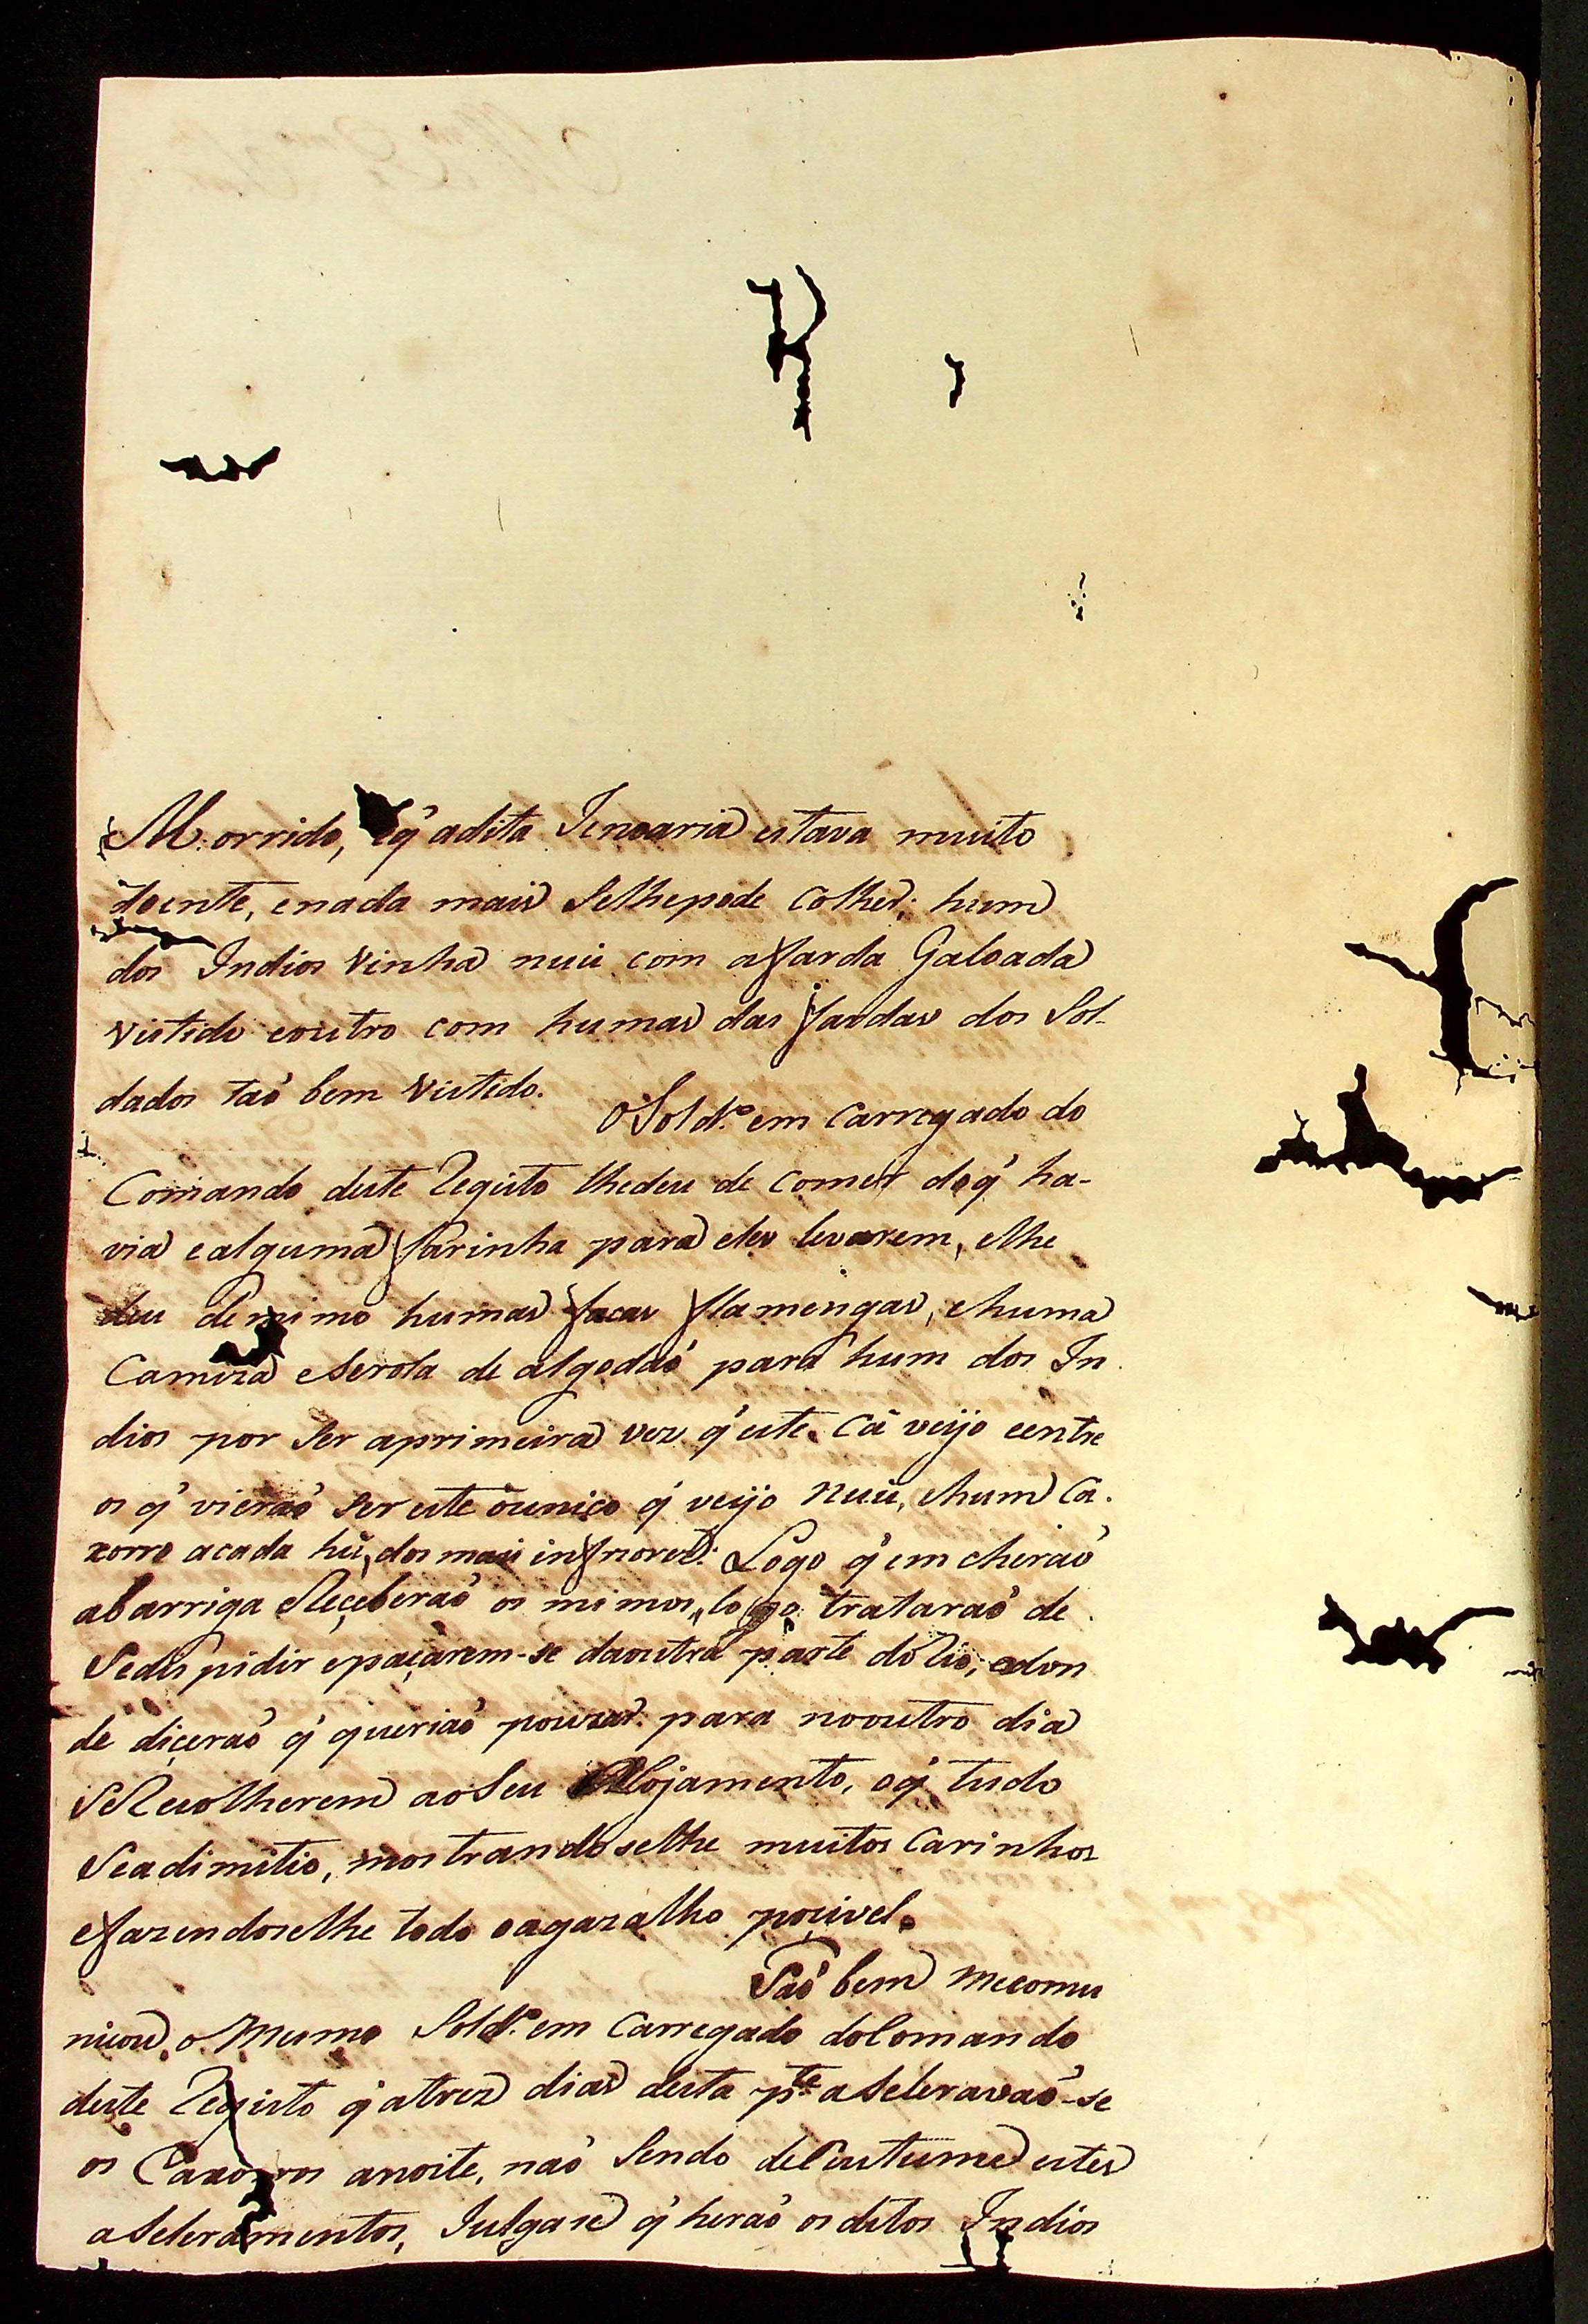 Morrido, eq̃ adita Jenoaria estava muito
doente, enada mais Selhepode Colher; hum
dos Indios vinha nuú com afarda Galoada
vistido eoutro com humas das fardas dos Sol-
dados taõ bem vistido.
OSold.º em Carregado do
Comando deste Registo lhedeu de Comer doq̃ ha-
via ealguma farinha para eles levarem, elhe
deu demimo humas facas flamengas, ehuma
Camiza eSerola de algodaõ para hum dos In
dios por Ser aprimeira vez q̃ este Cá veyo eentre
os q̃ vieraõ Ser este oúnico q̃ veyo nuú, ehum Ca.
xorro acada hũ dos mais infriores: Logo q̃ em cheraõ
abarriga eReçeberaõ os mimos, logo trataraõ de
Sedispidir epaçarem-se daoutra parte doRio, adon
de diçeraõ q̃ queriaõ pouzar para nooutro dia
SeReColherem aoSeu Alojamento, oq̃ tudo
Seadimitio, mostrandoselhe muitos Carinhos
efazendoselhe todo oagazalho poçivel.
Taõ bem mecomu
nicou o Mesmo Sold.º em Carregado doComando
deste Registo q̃ atrez dias desta p.te aSeleravaõ-se
os Caxorros anoite, naõ Sendo deCustume estes
aSeleramentos, Julgase q̃ heraõ os ditos Indios